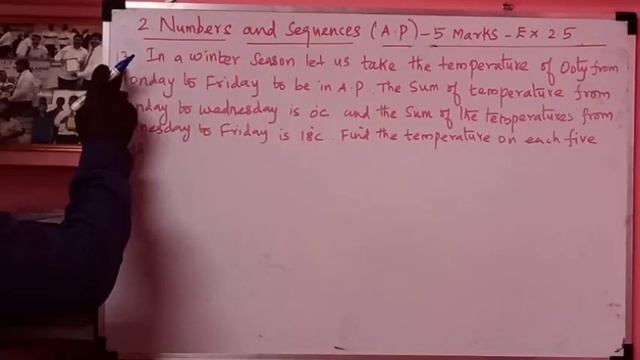 2. Numbers and Sequences (A.P) - 5 Marks - Ex 2.5
In a winter season let us take the temperature of Ooty from
onday to Friday to be in A.P. The Sum of temperature from
nday to wednesday is 0°c and the Sum of the temperatures from
nesday to Friday is 18°c. Find the temperature on each five